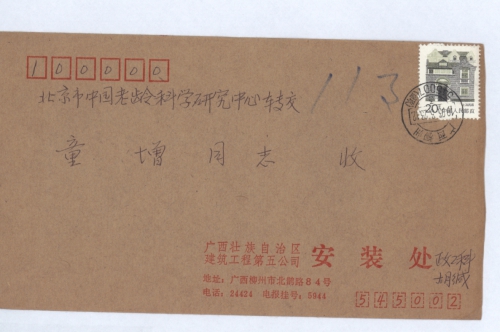 100000
北京市中国老龄科学研究中心转交
113
童增同志 收
20
广西壮族自治区
建筑工程第五公司 安装处
地址：广西柳州市北鹊路84号
电话：24424 电报挂号：5944
545002